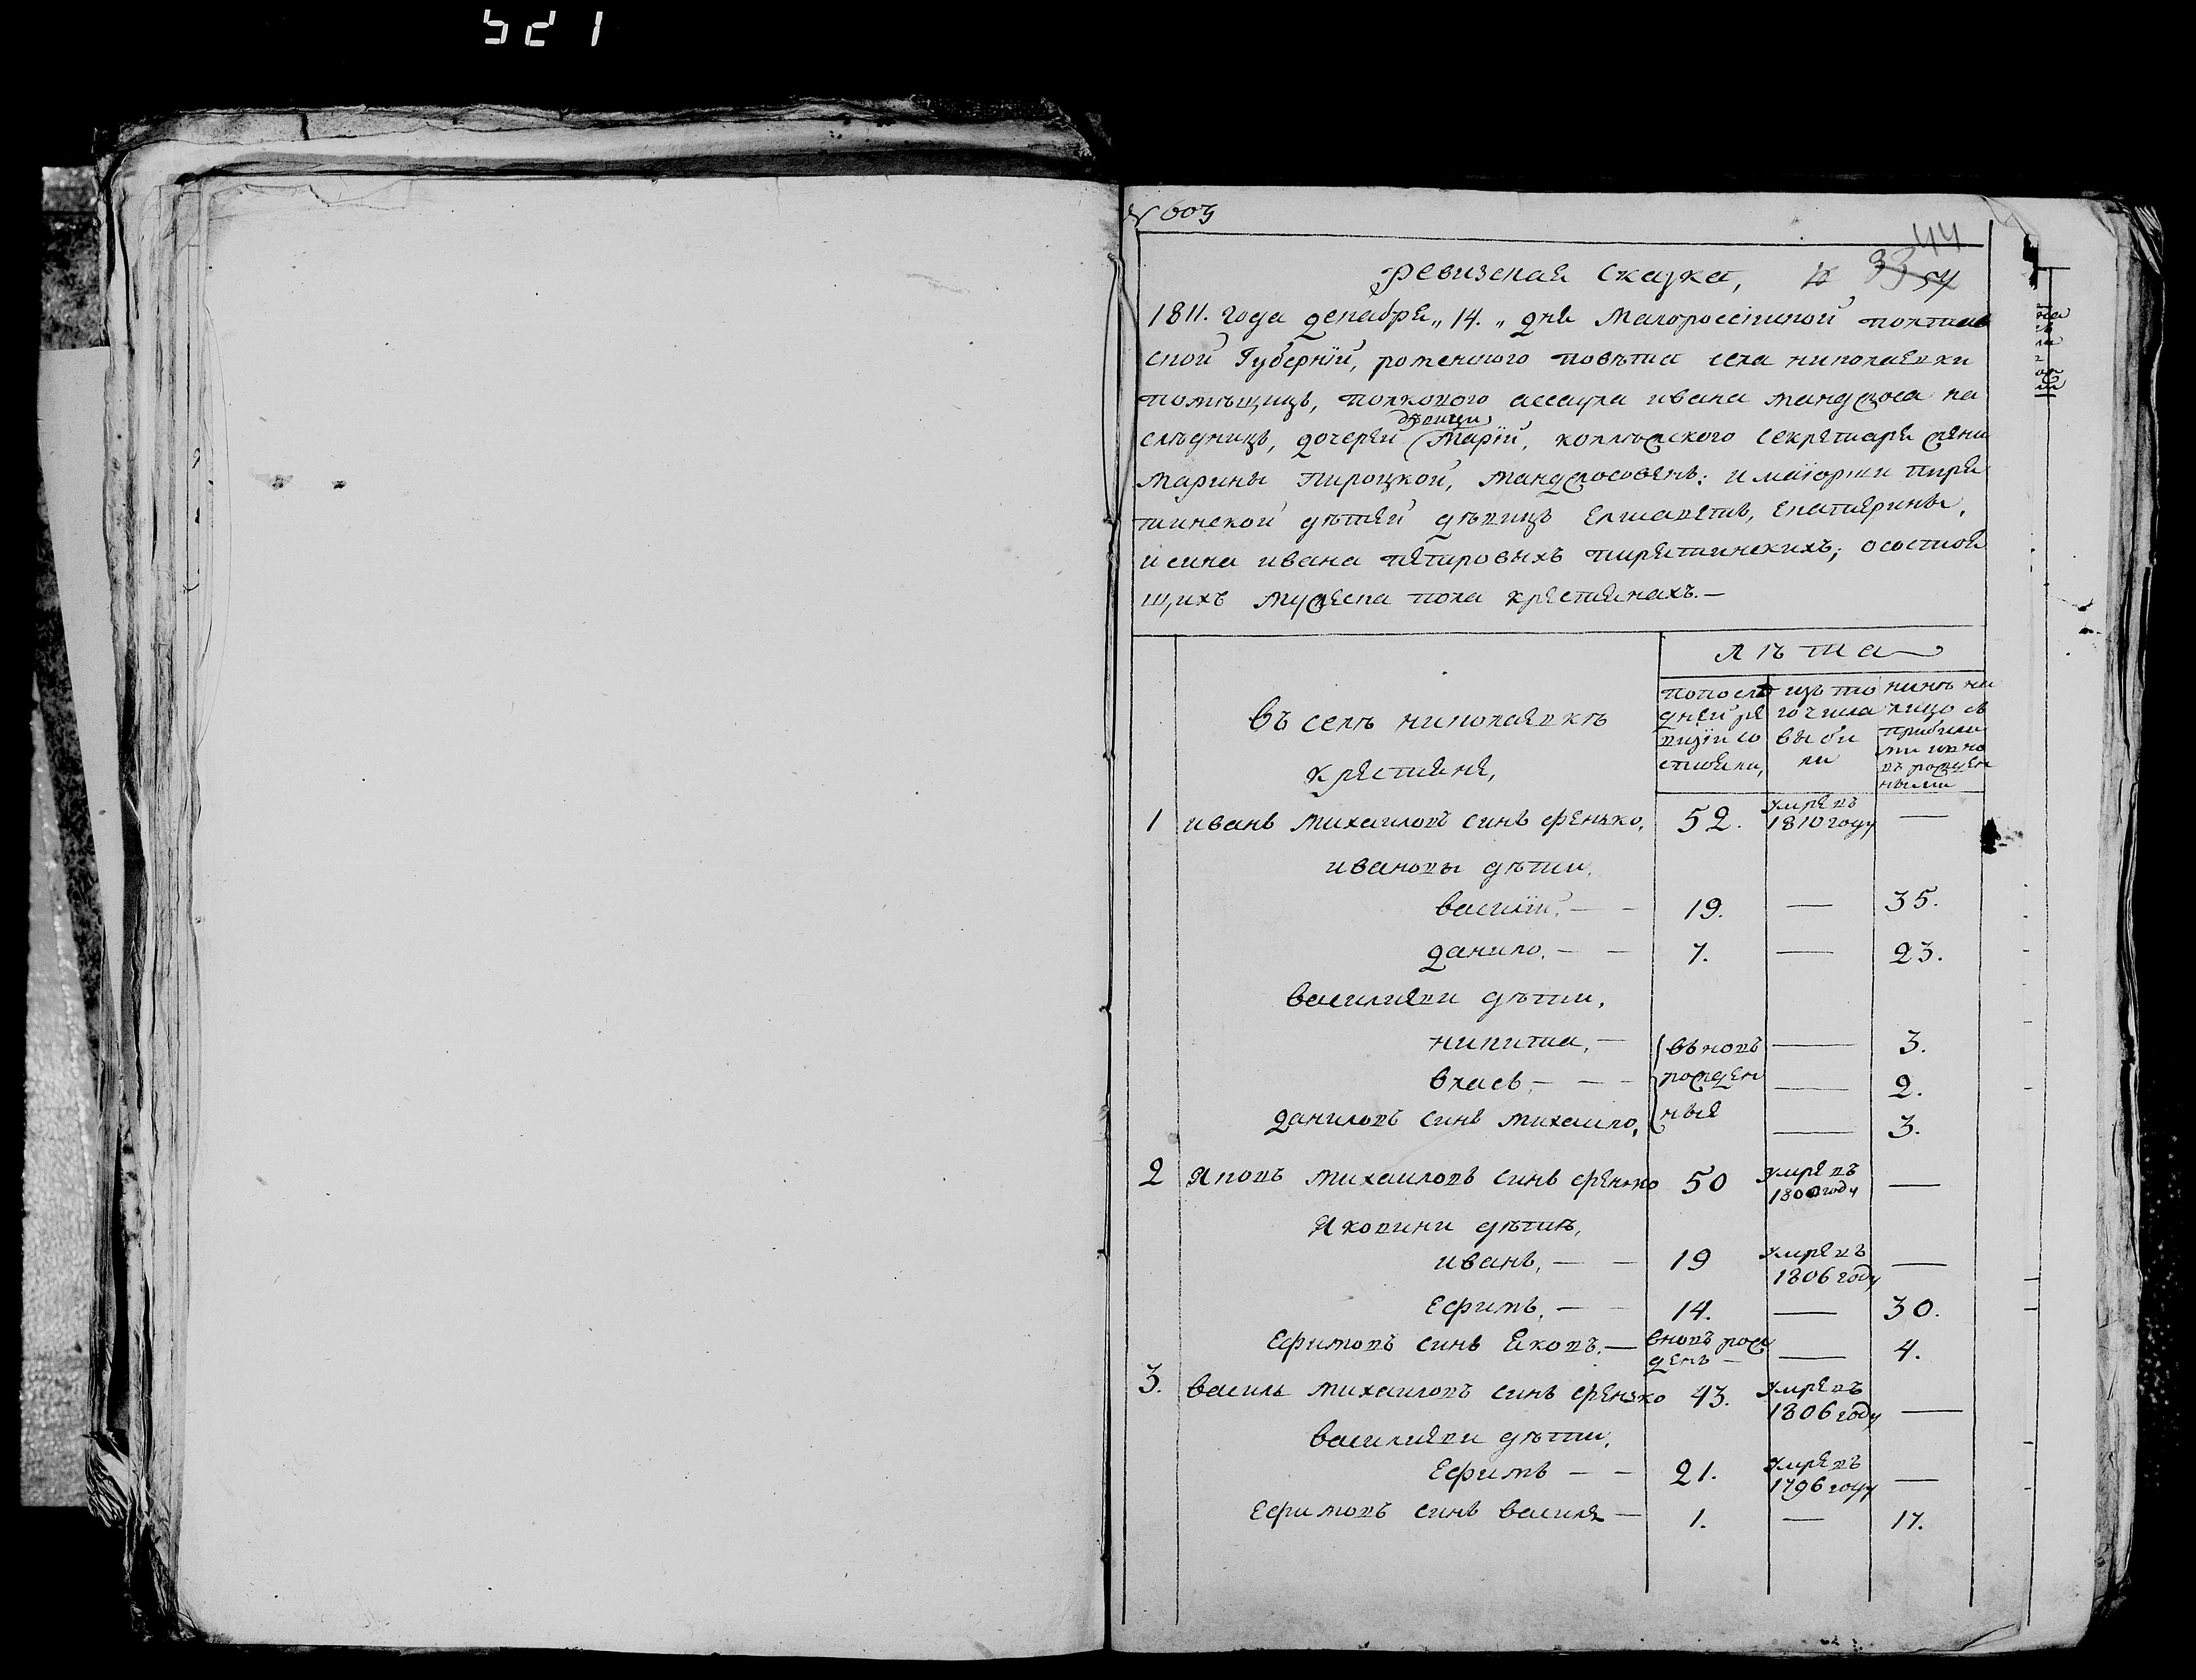 521
N 603
44
Ревизская сказка, 33 54
1811. года декабря „ 14. „ дня Малороссійской полтав
ской Губерніи, роменского повѣта села николаевки
помѣщицъ, полкового асаула ивана мандроса на
слѣдницъ, дочерей девици Маріи, коллежского секретаря жени
Марины Пироцкой, Мандросовенъ: и маіорши пиря
тинской дѣтей дѣвицъ Елисаветы, Екатерины,
и сина ивана петаровыхъ пирятинскихъ; о состоя
щихъ мужеска пола крестянахъ.—
лѣта
въ селѣ николаевкѣ
крестяне,
попосле дней ре визіи со стояли,
изъ то го числа выби ли
нинѣ на лицо съ прибили ми и вно въ рожден ными
1 иванъ михаиловъ синъ френко, 52. умре въ 1810 году —
ивановы дѣти,
василій, — — 19. — 35.
данило, — — 7. — 23.
василиеви дѣти,
никита, — вьновъ — 3.
власъ, — — — рожден — 2.
даниловъ синъ михаило, ные — 3.
2 яковъ михаиловъ синъ френко 50 умре въ 1800 году —
яковини дѣти,
иванъ, — — 19 умре въ 1806 году —
Ефимъ, — — 14. — 30.
Ефимовъ синъ яковъ, — вновъ рож денъ — — 4.
3. василь михаиловъ синъ френко 43. умре въ 1806 году —
василиеви дѣти,
Ефимъ — — 21. умре въ 1796 году —
Ефимовъ синъ василя — 1. — 17.